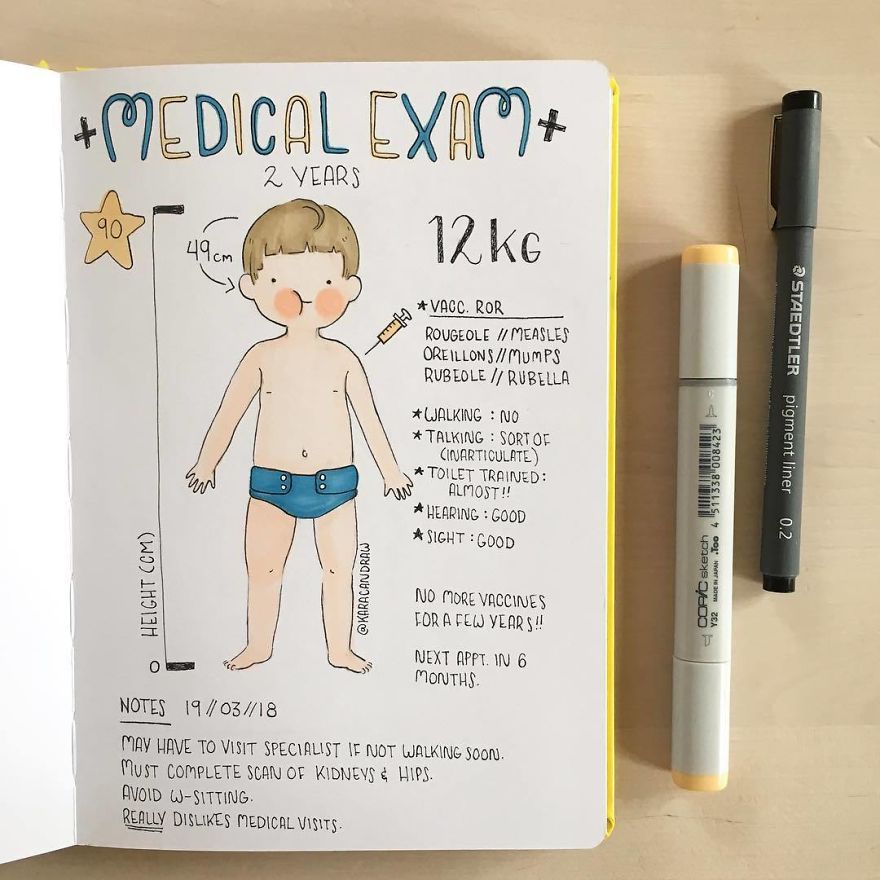 +MEDICAL EXAM+
2 YEARS
90
49cm
12KG
*VACC. ROR
ROUGEOLE // MEASLES
OREILLONS//MUMPS
RUBEOLE // RUBELLA
*WALKING : NO
*TALKING : SORT OF
(INARTICULATE)
*TOILET TRAINED:
ALMOST!!
*HEARING : GOOD
*SIGHT : GOOD
@KARACANDRAW
HEIGHT (CM)
0
NO MORE VACCINES
FOR A FEW YEARS!!
NEXT APPT. IN 6
MONTHS.
NOTES 19//03//18
MAY HAVE TO VISIT SPECIALIST IF NOT WALKING SOON.
MUST COMPLETE SCAN OF KIDNEYS & HIPS.
AVOID W-SITTING.
REALLY DISLIKES MEDICAL VISITS.
COPIC sketch
MADE IN JAPAN .Too
Y32
4 511338 008423
STAEDTLER
pigment liner 0.2